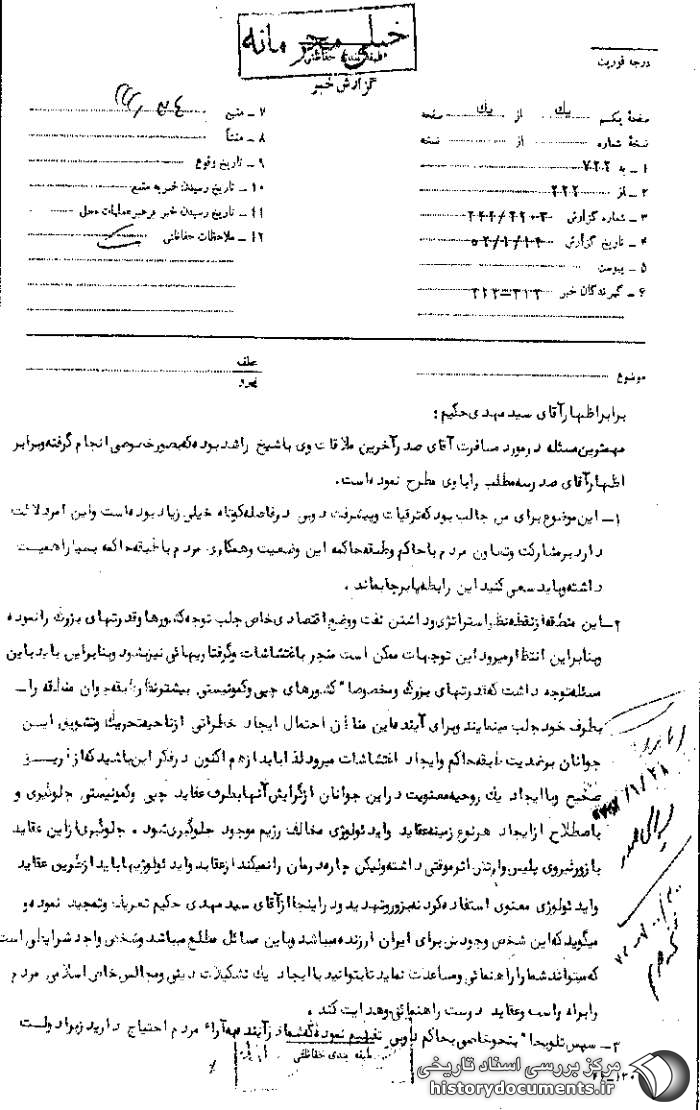 خیلی محرمانه
طبقه بندی حفاظتی
گزارش خبر
درجه فوریت
صفحهٔ یکم یک از یک صفحه
نسخهٔ شماره از نسخه
۱ – به ۷۲۲
۲ – از ۲۲۲
۳ – شماره گزارش
۴ – تاریخ گزارش ۵۲/۱/۱۴
۵ – پیوست
۶ – گیرندگان خبر ۳۱۳–۳۱۲
۷ – منبع
۸ – منشأ
۹ – تاریخ وقوع
۱۰ – تاریخ رسیدن خبر به منبع
۱۱ – تاریخ رسیدن خبر برهبر عملیات محل
۱۲ – ملاحظات حفاظتی
موضوع
عطف
پیرو
برابر اظهار آقای سید مهدی حکیم :
مهمترین مسئله در مورد مسافرت آقای صدر آخرین ملاقات وی با شیخ راشد بوده که بصورت خصوصی انجام گرفته و برابر
اظهار آقای صدر سه مطلب را با وی مطرح نموده است.
۱– این موضوع برای من جالب بود که ترقیات و پیشرفت دوبی در فاصله کوتاه خیلی زیاد بوده است و این امر دلالت
دارد بر مشارکت و تعاون مردم با حاکم و طبقه حاکمه این وضعیت و همکاری مردم با طبقه حاکمه بسیار اهمیت
داشته و باید سعی کنید این رابطه پا برجا بماند .
۲– این منطقه از نقطه نظر استراتژی و داشتن نفت و وضع اقتصادی خاص جلب توجه کشورها و قدرتهای بزرگ را نموده
و بنابراین انتظار میرود این توجهات ممکن است منجر باغتشاشات و گرفتاریهائی نیز بشود و بنابراین باید باین
مسئله توجه داشت که قدرتهای بزرگ و مخصوصا" کشورهای چپی و کمونیستی بیشتر نظر طبقه جوان منطقه را –
بطرف خود جلب مینمایند و برای آینده این مناطق احتمال ایجاد خطراتی از ناحیه تحریک و تشویق این
جوانان بر ضدیت طبقه حاکم و ایجاد اغتشاشات میرود لذا باید از هم اکنون در فکر این باشید که از طریق
صحیح و با ایجاد یک روحیه معنویت در این جوانان از گرایش آنها بطرف عقاید چپی و کمونیستی جلوگیری و
باصطلاح از ایجاد هر نوع زمینه عقاید و ایدئولوژی مخالف رژیم موجود جلوگیری شود . جلوگیری از این عقاید
با زور نیروی پلیس و ارتش اثر موقتی داشته ولیکن چاره درمان را نمیکند از عقاید و ایدئولوژیها باید از طریق عقاید
و ایدئولوژی معنوی استفاده کرد نه بزور و تهدید و در اینجا از آقای سید مهدی حکیم تعریف و تمجید نموده و
میگوید که این شخص وجودش برای ایران ارزنده میباشد و باین مسائل مطلع میباشد و شخص واجد شرایطی است
که میتواند شما را راهنمائی و مساعدت نماید تا بتوانید با ایجاد یک تشکیلات دینی و مجالس خاص اسلامی مردم
را براه راست و عقاید درست راهنمائی و هدایت کند .
۳– سپس تلویحا" بنحو خاصی بحاکم دوبی تفهیم نموده که شما در آینده به آراء مردم احتیاج دارید زیرا دولت
طبقه بندی حفاظتی
مرکز بررسی اسناد تاریخی
historydocuments.ir